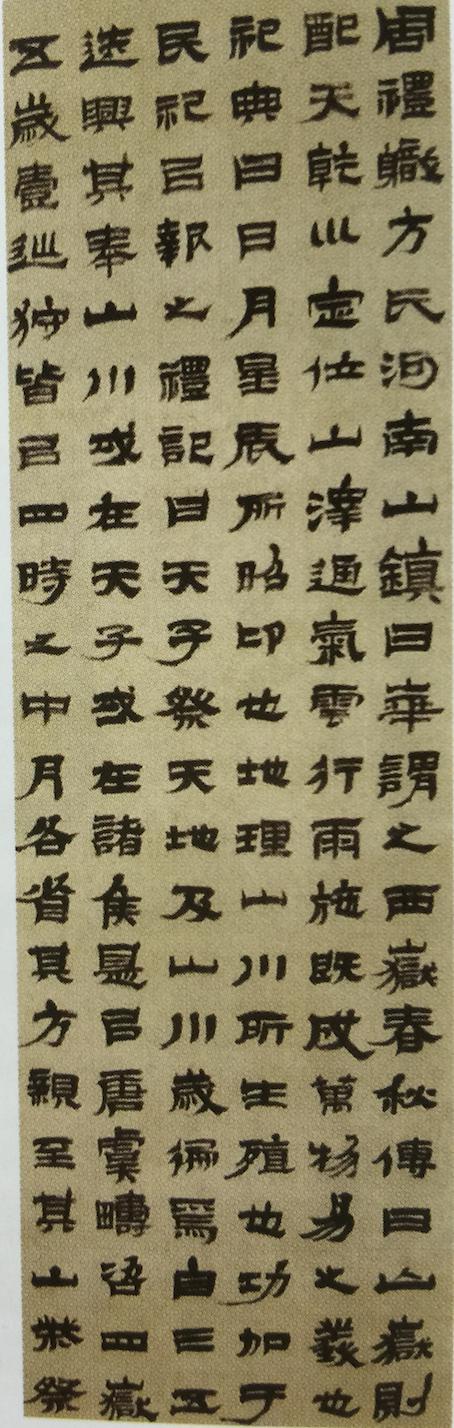 周禮職方氏河南山鎮曰華謂之西嶽春秋傳曰山嶽則
配天乾巛定位山澤通氣雲行雨施既成萬物易之義也
祀典曰日月星辰所昭卬也地理山川所生殖也功加于
民祀㠯報之禮記曰天子祭天地及山川歲徧焉自三五
迭興其奉山川或在天子或在諸侯是㠯唐虞疇咨四嶽
五歲壹巡狩皆㠯四時之中月各省其方親至其山柴祭